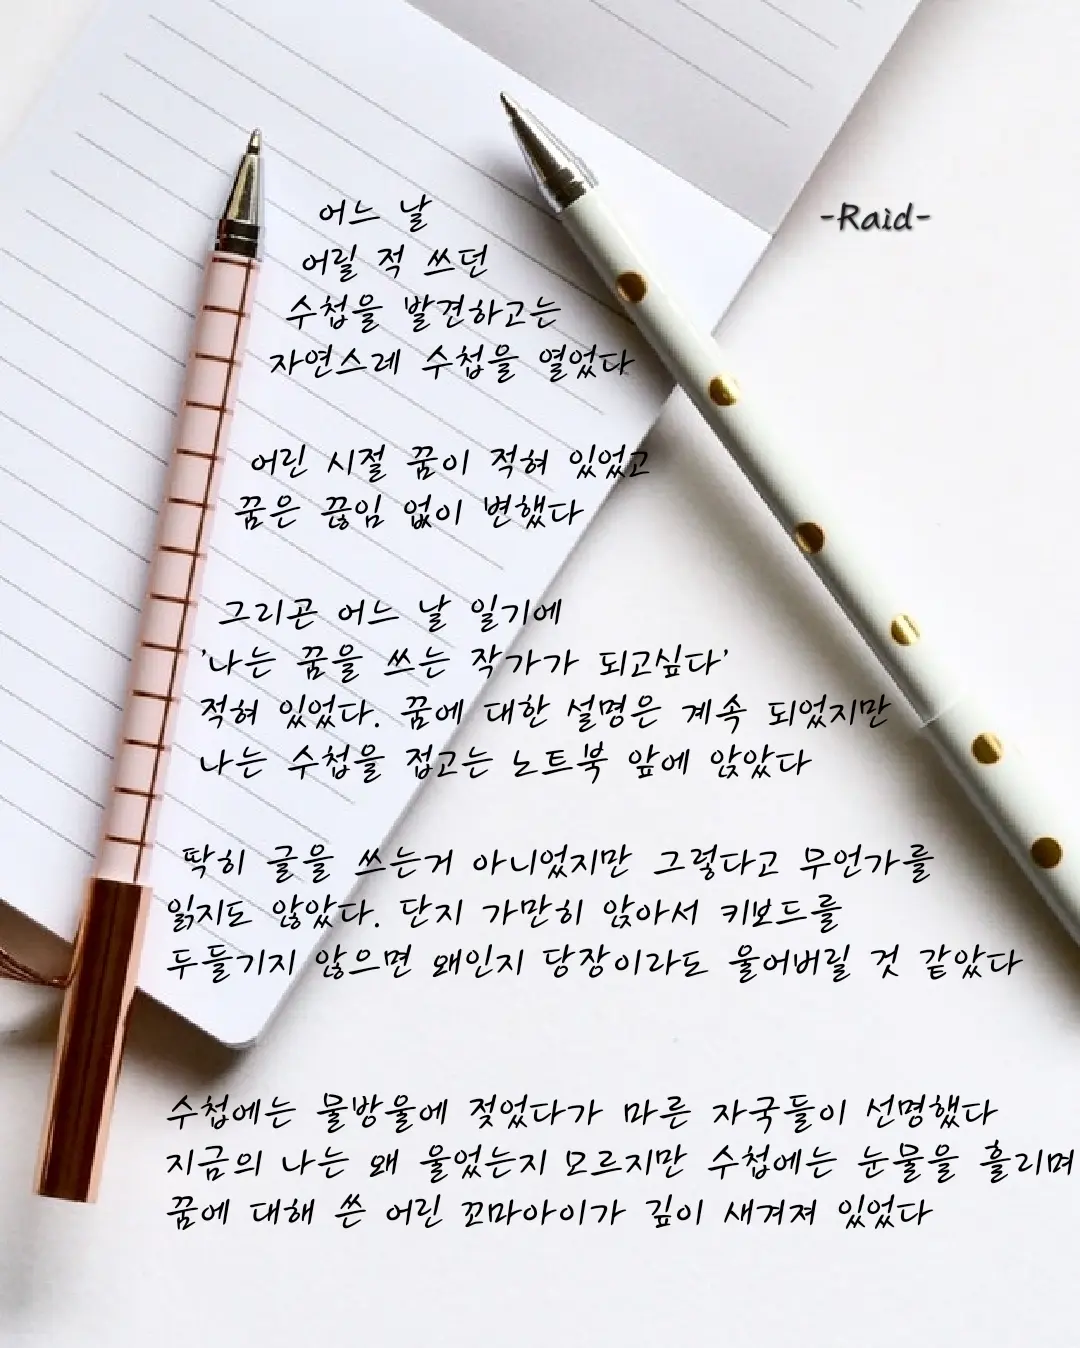 -Raid-
어느 날
어릴 적 쓰던
수첩을 발견하고는
자연스레 수첩을 열었다
어린 시절 꿈이 적혀 있었고
꿈은 끊임 없이 변했다
그리곤 어느 날 일기에
'나는 꿈을 쓰는 작가가 되고싶다'
적혀 있었다. 꿈에 대한 설명은 계속 되었지만
나는 수첩을 접고는 노트북 앞에 앉았다
딱히 글을 쓰는거 아니었지만 그렇다고 무언가를
읽지도 않았다. 단지 가만히 앉아서 키보드를
두들기지 않으면 왜인지 당장이라도 울어버릴 것 같았다
수첩에는 물방울에 젖었다가 마른 자국들이 선명했다
지금의 나는 왜 울었는지 모르지만 수첩에는 눈물을 흘리며
꿈에 대해 쓴 어린 꼬마아이가 깊이 새겨져 있었다